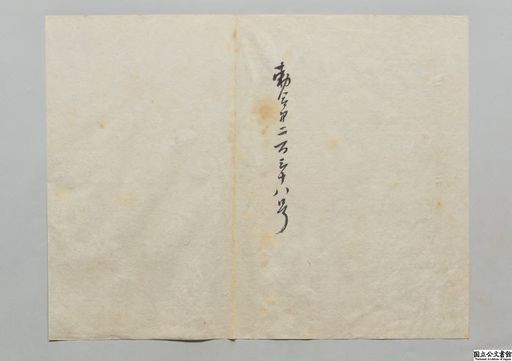 勅令第二百三十八号
国立公文書館
National Archives of Japan